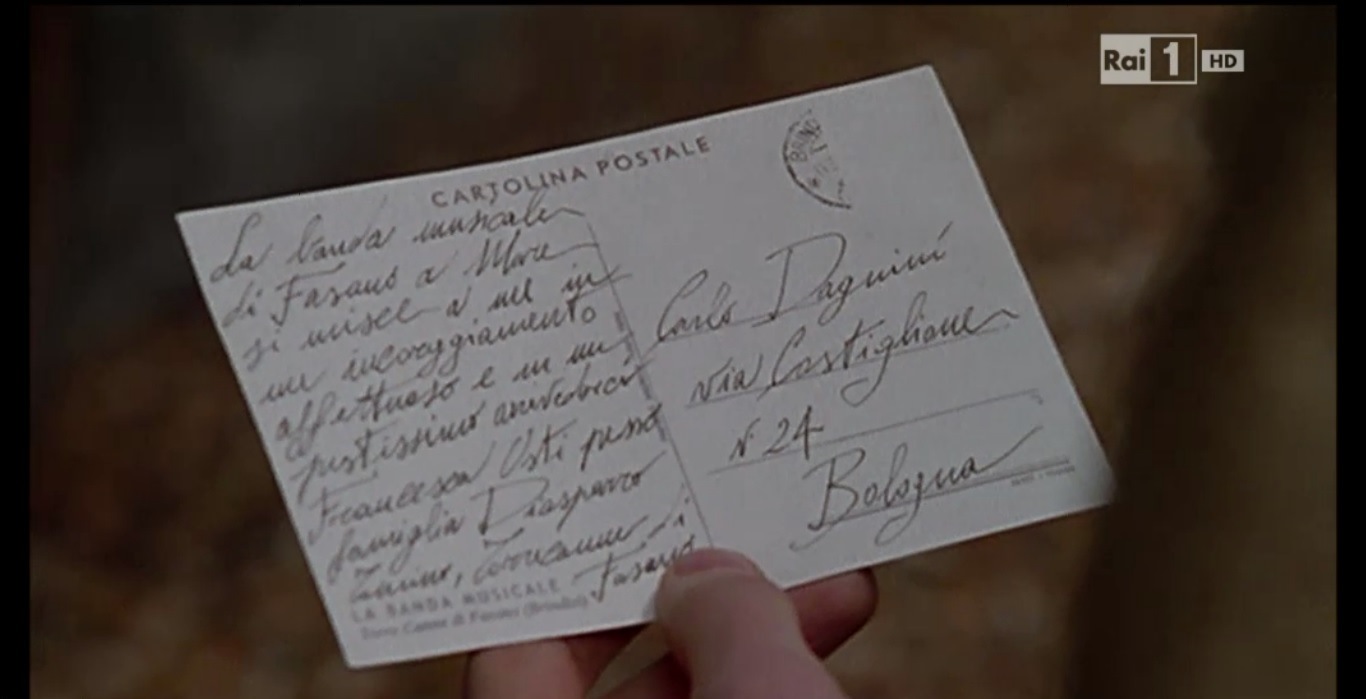 Rai 1 HD
CARTOLINA POSTALE
BRIND
La banda musicale
di Fasano a Mare
si unisce a me in
un incoraggiamento
affettuoso e in un
prestissimo arrivederci
Francesca Osti presso
famiglia Diasparro
Torrecanne di
Fasano
LA BANDA MUSICALE
Torre Canne di Fasano (Brindisi)
Carlo Dagnini
via Castiglione
N. 24
Bologna